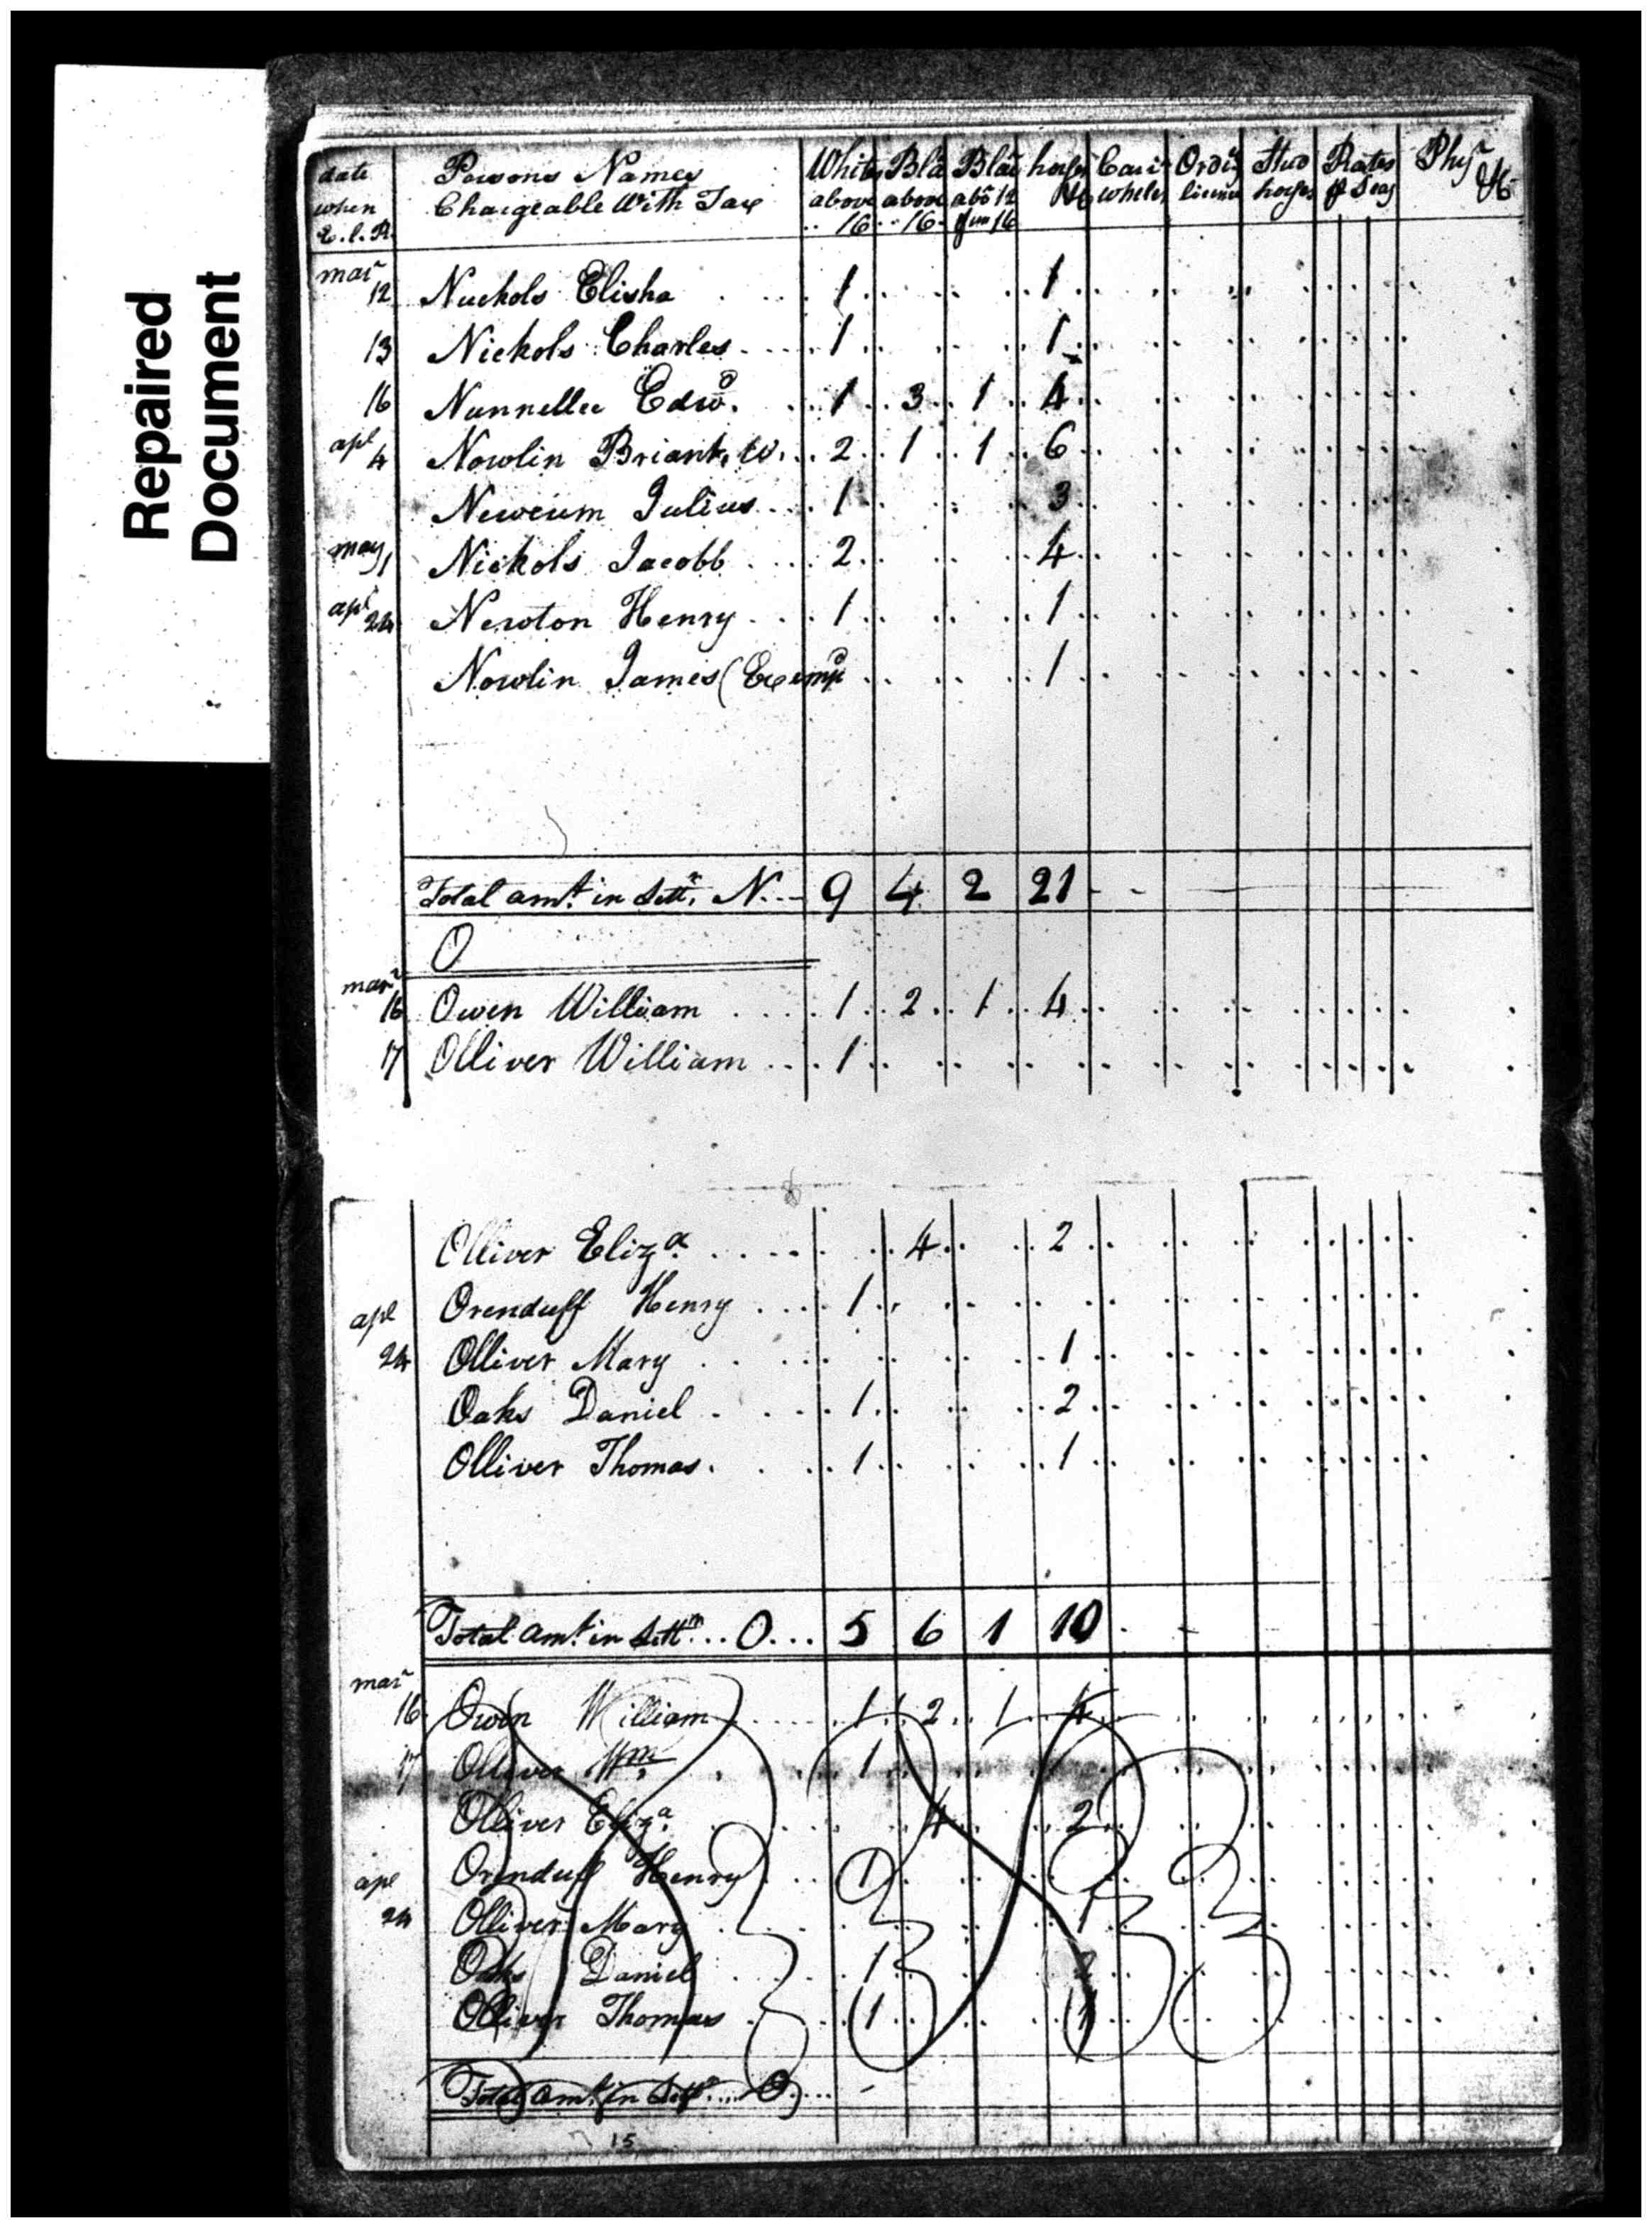 Repaired
Document
date Persons Names White Bla Bla horses Cari Ordi Stud Rates Phy
when Chargeable With Tax above above abo 12 &c wheles licence horses of Seas &c
16 16 16
mar 12 Nuckols Elisha 1 1
13 Nickols Charles 1 1
16 Nunnellee Edwd. 1 3 1 4
apl 4 Nowlin Briant W. 2 1 1 6
Newcum Julius 1 3
may 1 Nickols Jacobb 2 4
apl 24 Newton Henry 1 1
Nowlin James (Exemp 1
Total amt. in Lettr. N. 9 4 2 21
O
mar 16 Owen William 1 2 1 4
17 Olliver William 1
Olliver Eliza. 4 2
apl Orenduff Henry 1
24 Olliver Mary 1
Oaks Daniel 1 2
Olliver Thomas. 1 1
Total amt. in Lettr... O... 5 6 1 10
mar 16 Owen William 1 2 1 4
17 Olliver Wm. 1
Olliver Eliza. 4 2
apl Orenduff Henry 1
24 Olliver Mary 1
Oaks Daniel 1 2
Olliver Thomas 1 1
Total amt. in Lettr.... O....
15